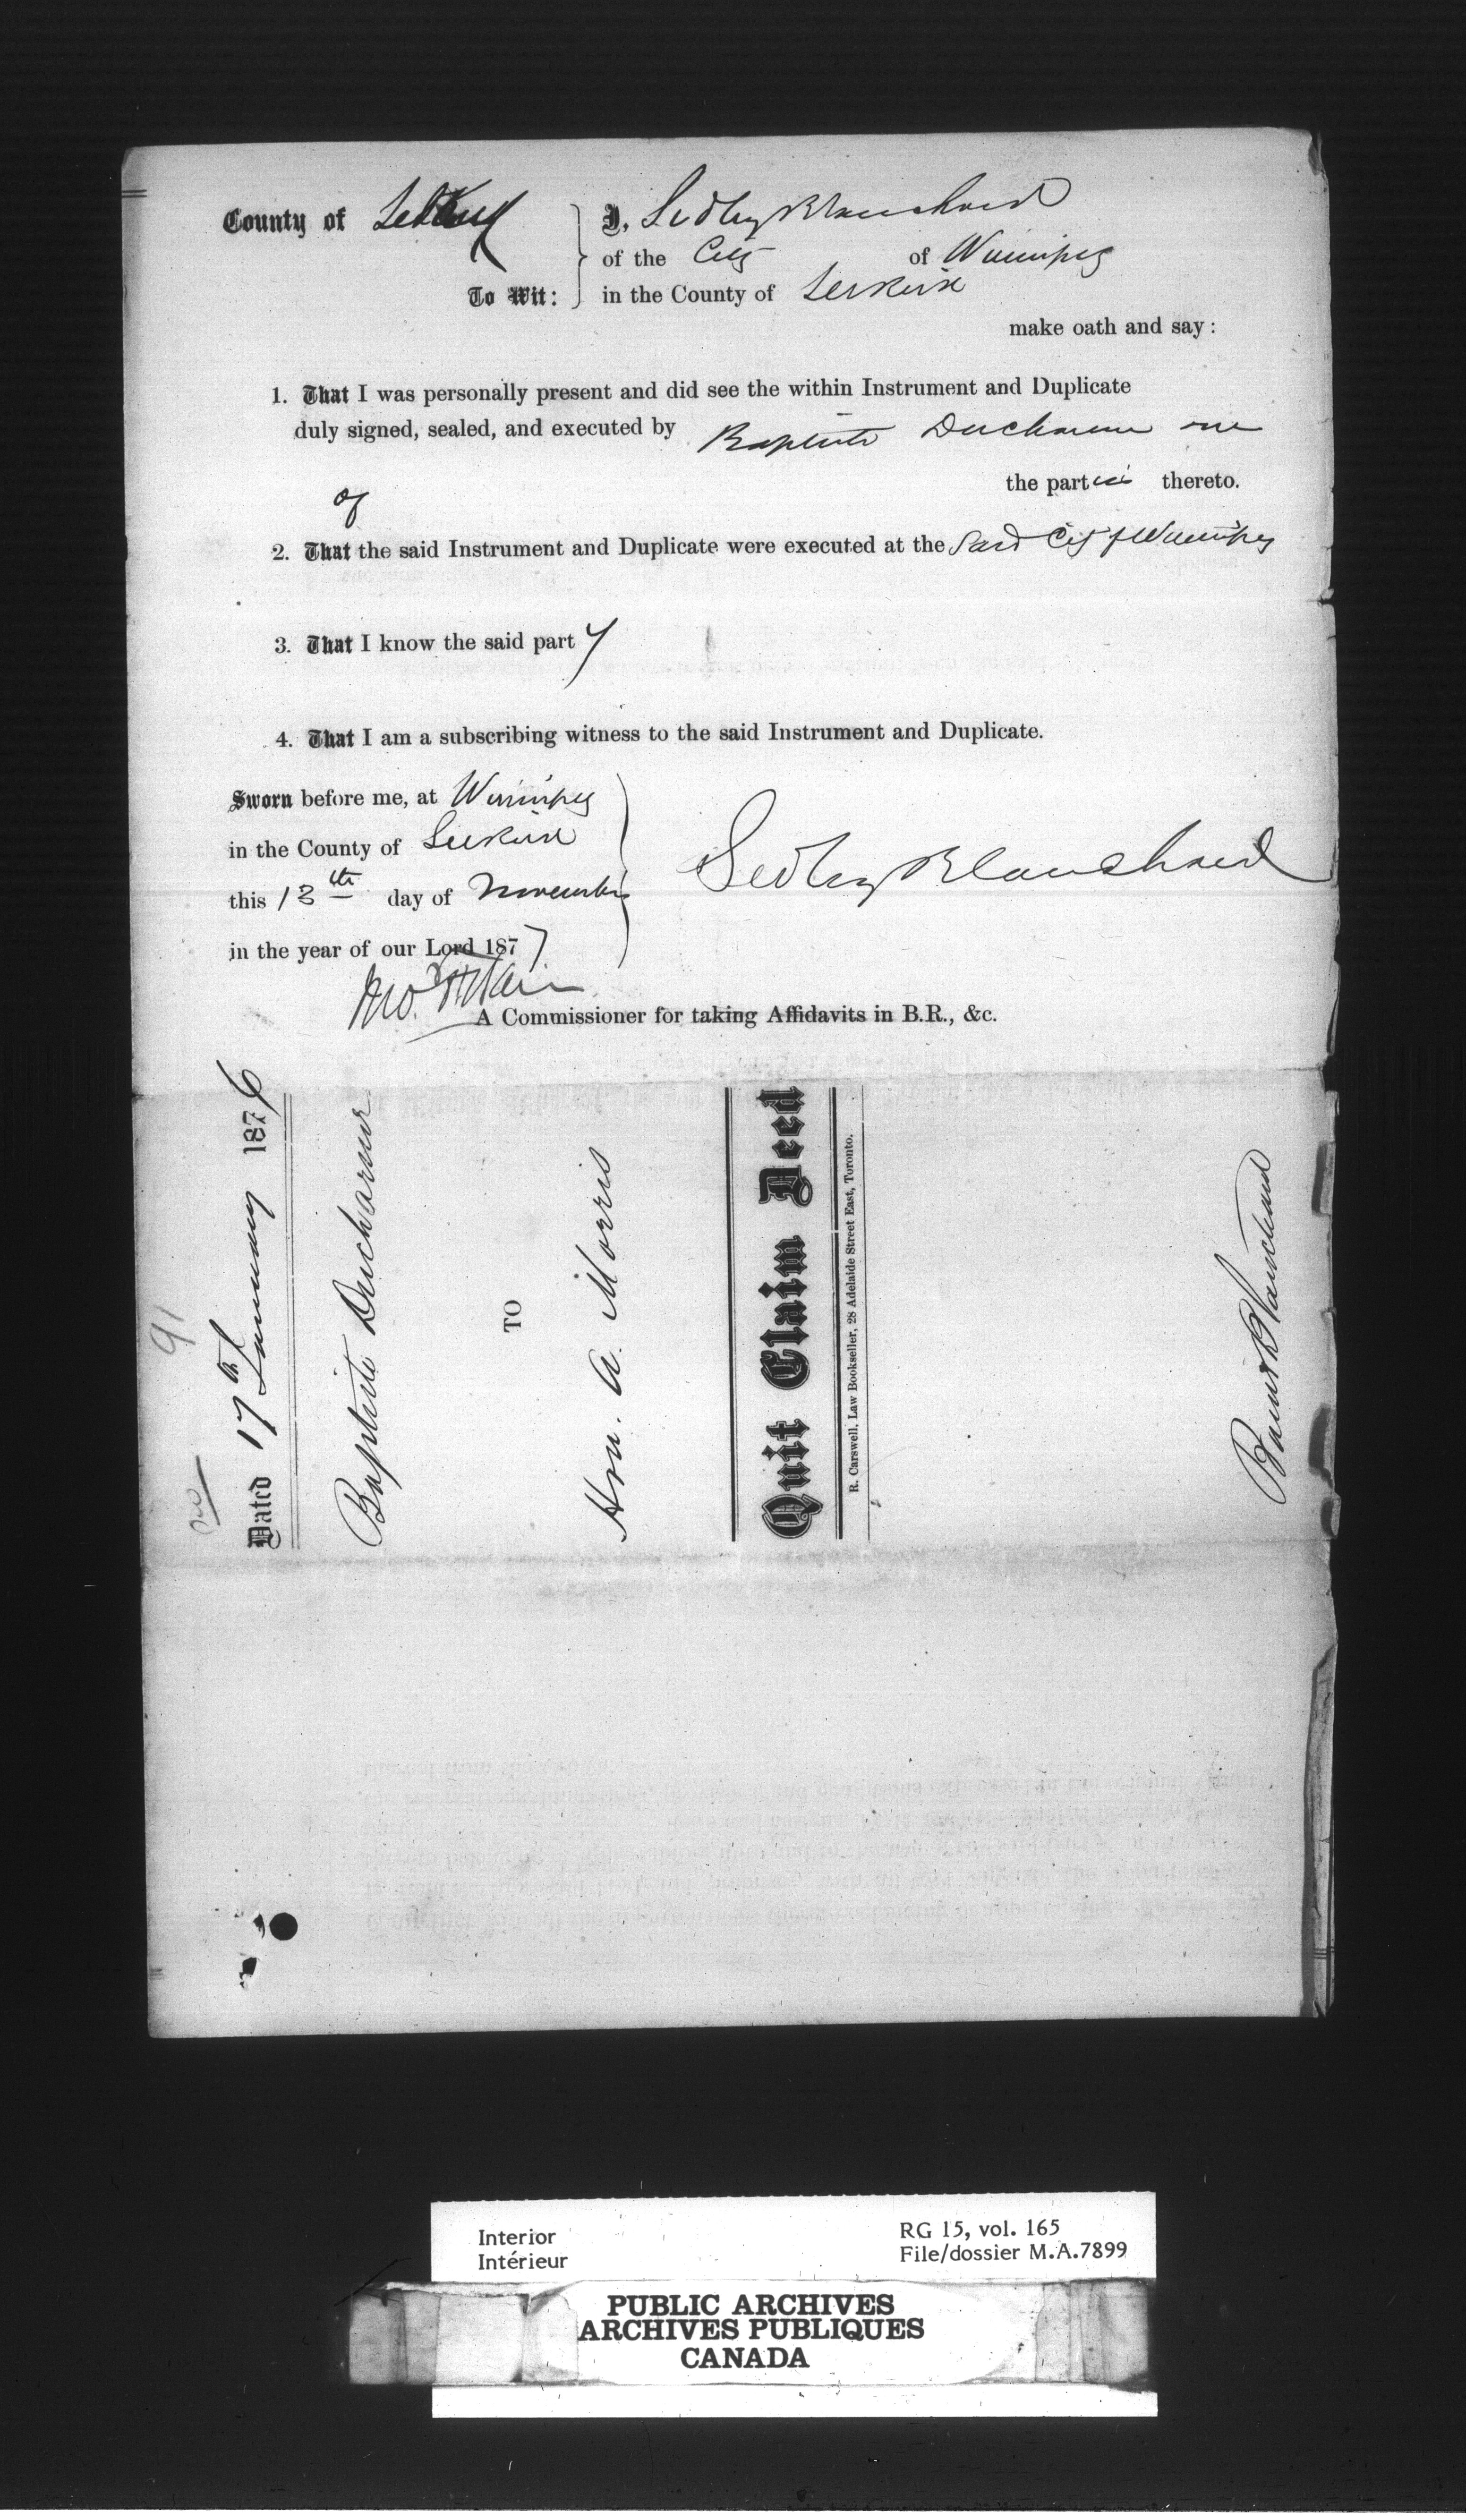 County of Selkirk
To Wit:
I, Sedley Blanchard
of the City of Winnipeg
in the County of Selkirk
make oath and say:
1. That I was personally present and did see the within Instrument and Duplicate
duly signed, sealed, and executed by Baptiste Ducharme one
of the parties thereto.
2. That the said Instrument and Duplicate were executed at the said City of Winnipeg
3. That I know the said party
4. That I am a subscribing witness to the said Instrument and Duplicate.
Sworn before me, at Winnipeg
in the County of Selkirk
this 13th day of November
in the year of our Lord 1877
Sedley Blanchard
A Commissioner for taking Affidavits in B.R., &c.
91
Dated 17th January 1876
Baptiste Ducharme
TO
Hon. A. Morris
Quit Claim Deed
R. Carswell, Law Bookseller, 28 Adelaide Street East, Toronto.
Bain & Blanchard
Interior
Intérieur
RG 15, vol. 165
File/dossier M.A.7899
PUBLIC ARCHIVES
ARCHIVES PUBLIQUES
CANADA